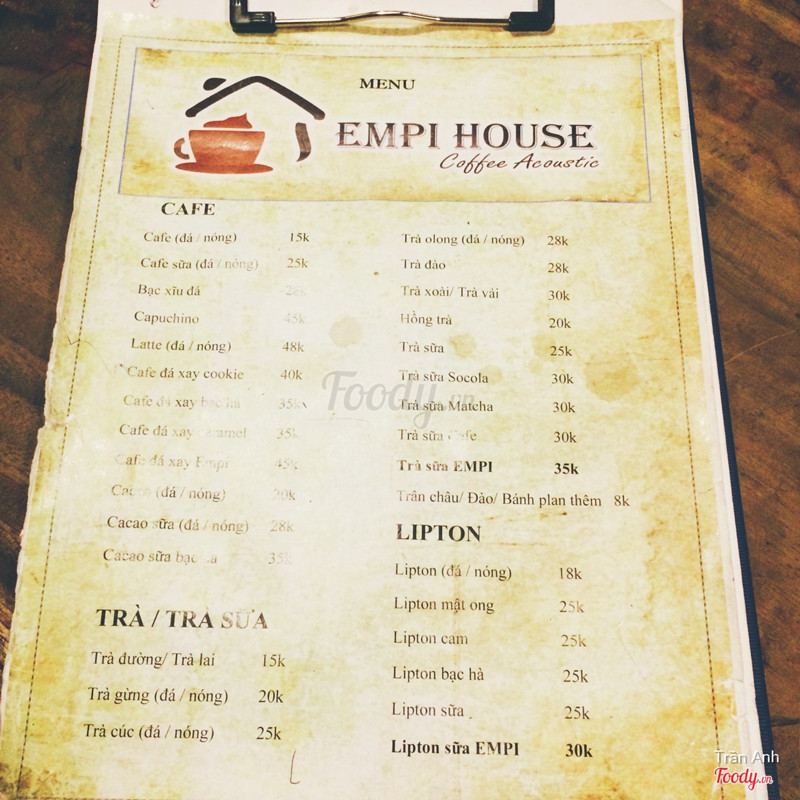 MENU
EMPI HOUSE
Coffee Acoustic
CAFE
Cafe (đá / nóng) 15k
Cafe sữa (đá / nóng) 25k
Bạc xĩu đá
Capuchino 45k
Latte (đá / nóng) 48k
Cafe đá xay cookie 40k
Cafe đá xay bạc hà 35k
Cafe đá xay 35k
Cafe đá xay Empi 45k
Cacao (đá / nóng) 20k
Cacao sữa (đá / nóng) 28k
Cacao sữa bạc hà 35k
TRÀ / TRÀ SỮA
Trà đường/ Trà lai 15k
Trà gừng (đá / nóng) 20k
Trà cúc (đá / nóng) 25k
Trà olong (đá / nóng) 28k
Trà đào 28k
Trà xoài/ Trà vải 30k
Hồng trà 20k
Trà sữa 25k
Trà sữa Socola 30k
Trà sữa Matcha 30k
Trà sữa Cafe 30k
Trà sữa EMPI 35k
Trân châu/ Đào/ Bánh plan thêm 8k
LIPTON
Lipton (đá / nóng) 18k
Lipton mật ong 25k
Lipton cam 25k
Lipton bạc hà 25k
Lipton sữa 25k
Lipton sữa EMPI 30k
Foody.vn
Trân Anh
Foody.vn